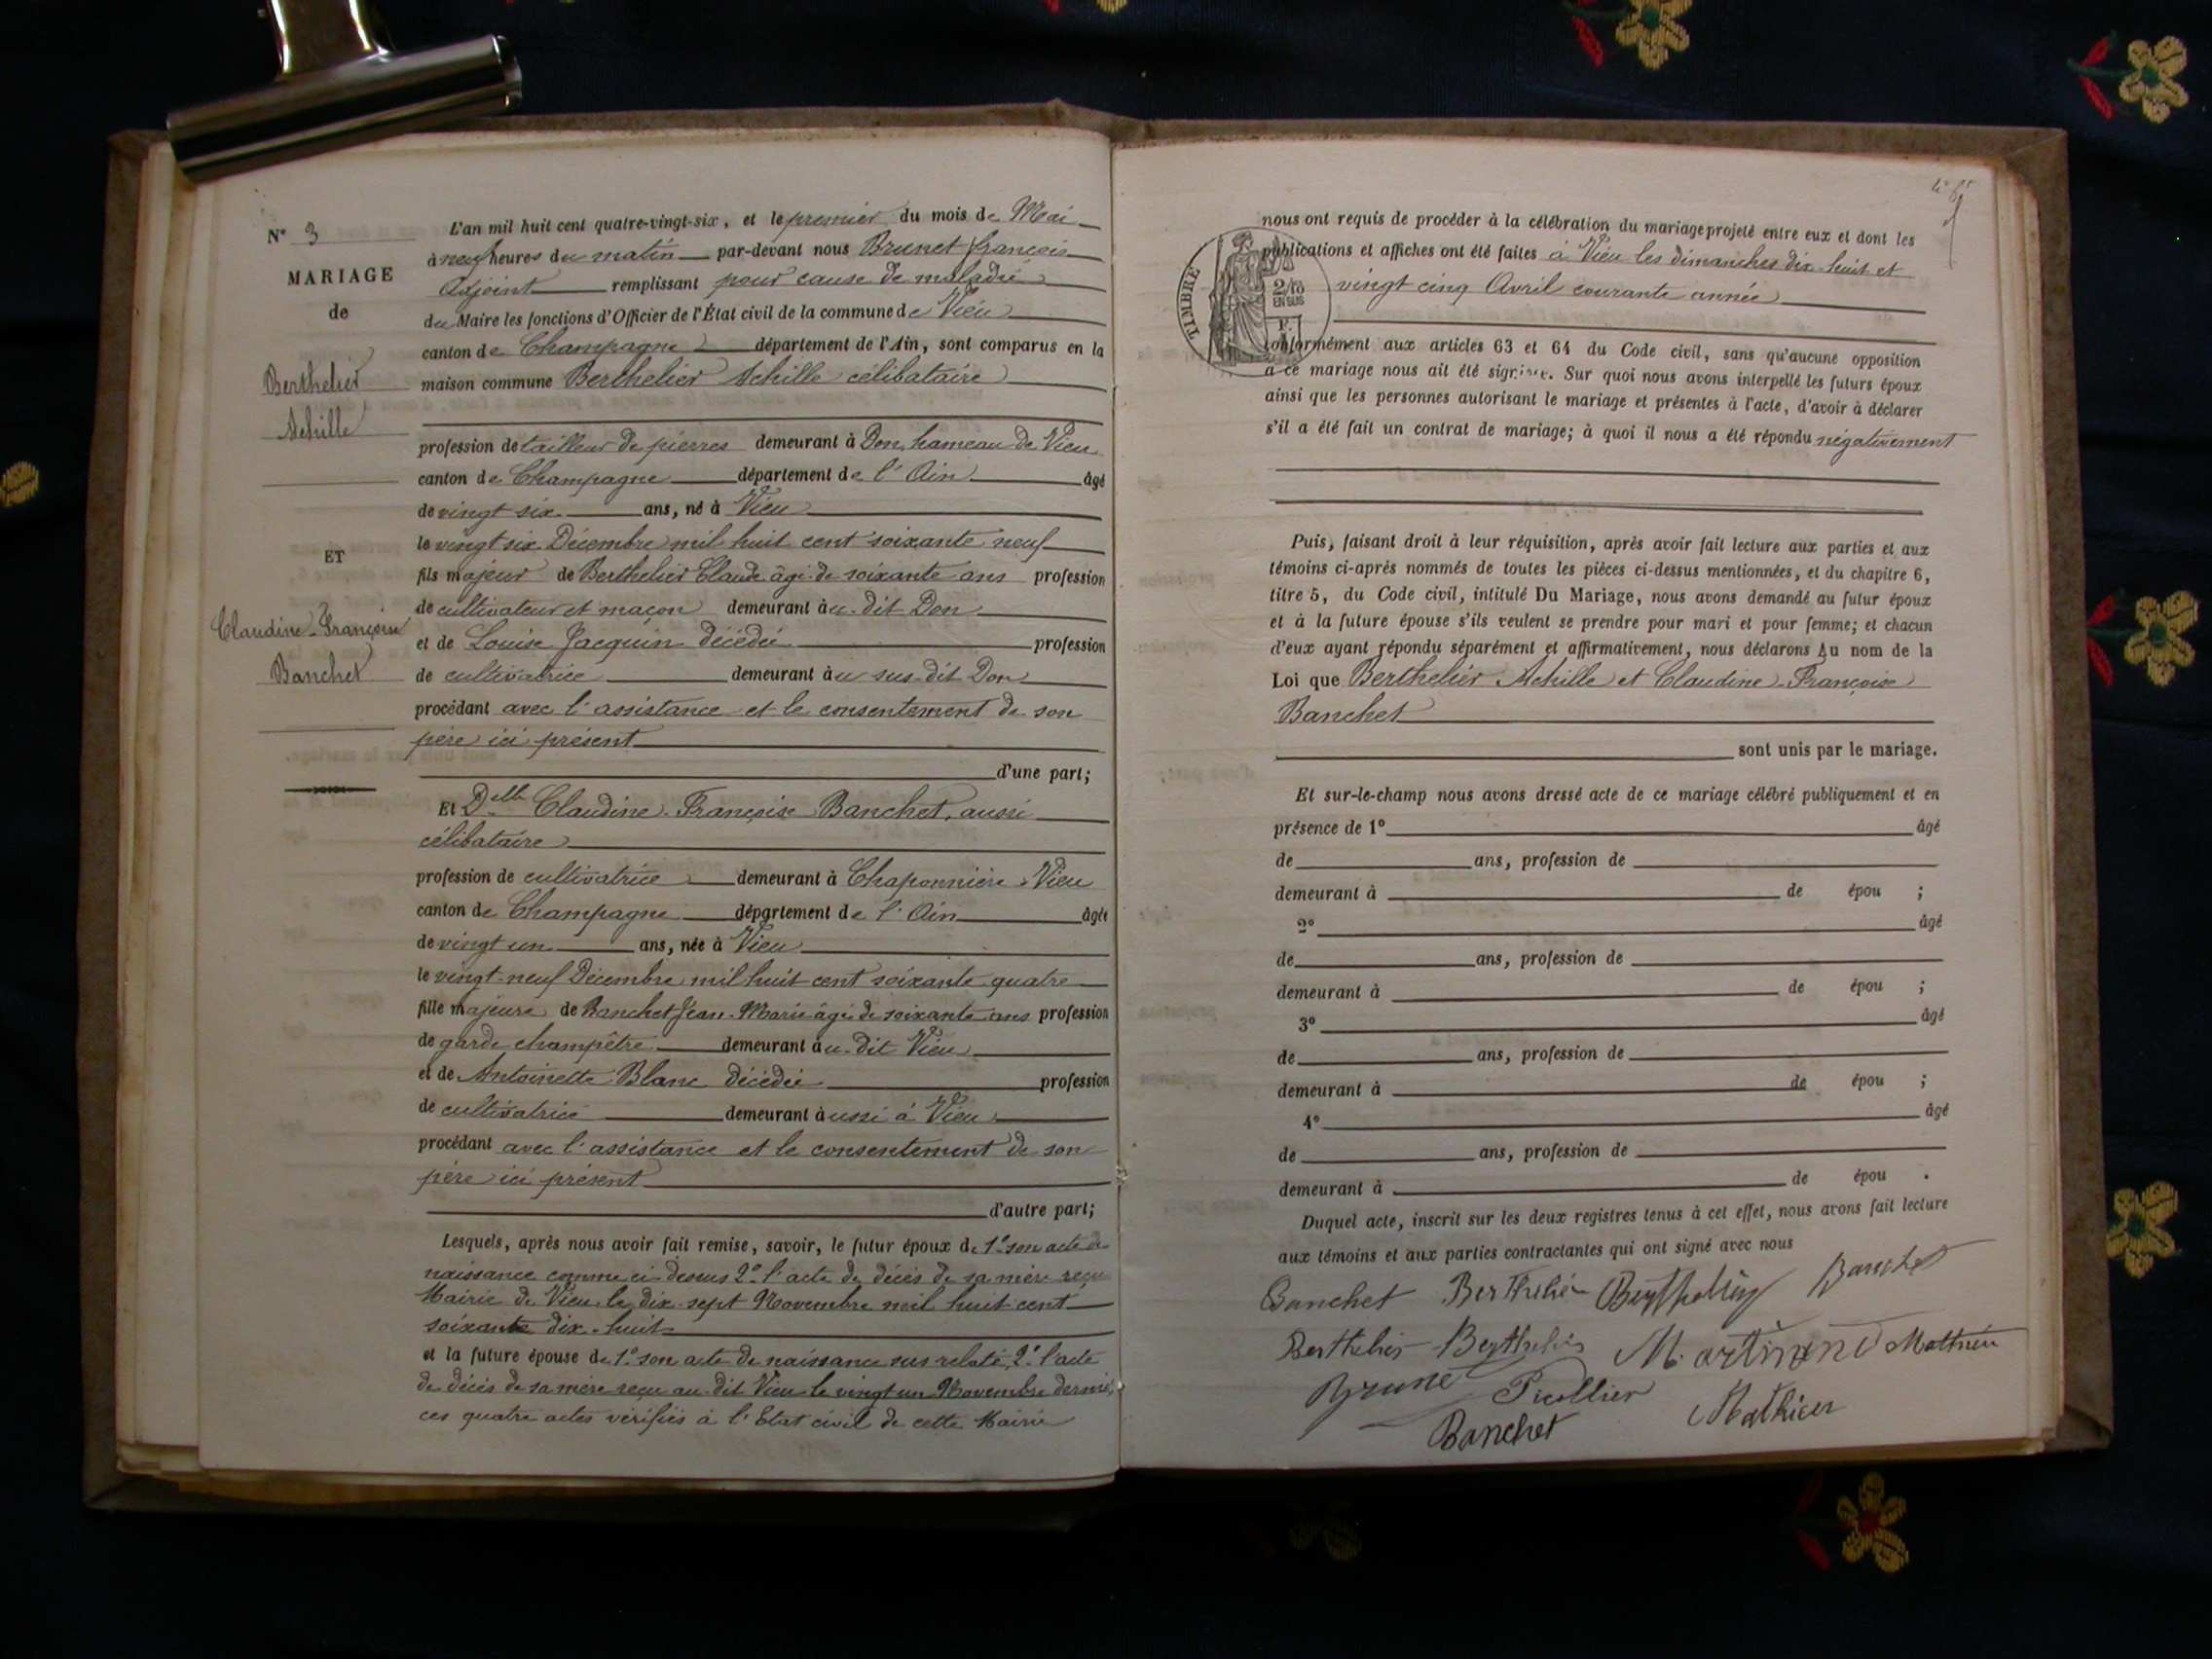 N° 3
MARIAGE
de
Berthelier
Achille
ET
Claudine-Françoise
Banchet
L'an mil huit cent quatre-vingt-six, et le premier du mois de Mai
à neuf heures du matin par-devant nous Brunet françois
Adjoint remplissant pour cause de maladie
du Maire les fonctions d'Officier de l'État civil de la commune de Vieu
canton de Champagne département de l'Ain, sont comparus en la
maison commune Berthelier Achille célibataire
profession de tailleur de pierres demeurant à Don, hameau de Vieu
canton de Champagne département de l'Ain âgé
de vingt six ans, né à Vieu
le vingt six Décembre mil huit cent soixante neuf
fils majeur de Berthelier Claude âgé de soixante ans profession
de cultivateur et maçon demeurant àu-dit Don
et de Louise Jacquin décédée profession
de cultivatrice demeurant àu sus-dit Don
procédant avec l'assistance et le consentement de son
père ici présent
d'une part;
Et Delle Claudine-Françoise Banchet, aussi
célibataire
profession de cultivatrice demeurant à Chaponnière Vieu
canton de Champagne département de l'Ain âgée
de vingt un ans, née à Vieu
le vingt-neuf Décembre mil huit cent soixante quatre
fille majeure de Banchet Jean-Marie âgé de soixante ans profession
de garde champêtre demeurant àu-dit Vieu
et de Antoinette Blanc décédée profession
de cultivatrice demeurant àussi à Vieu
procédant avec l'assistance et le consentement de son
père ici présent
d'autre part;
Lesquels, après nous avoir fait remise, savoir, le futur époux de 1° son acte de
naissance comme ci-dessus 2° l'acte de décès de sa mère reçu
Mairie de Vieu le dix-sept Novembre mil huit cent
soixante dix-huit
et la future épouse de 1° son acte de naissance sus relaté, 2° l'acte
de décès de sa mère reçu au-dit Vieu le vingt un Novembre dernier,
ces quatre actes vérifiés à l'Etat civil de cette Mairie
TIMBRE
2/10
EN SUS
nous ont requis de procéder à la célébration du mariage projeté entre eux et dont les
publications et affiches ont été faites à Vieu les dimanches dix-huit et
vingt cinq Avril courante année
conformément aux articles 63 et 64 du Code civil, sans qu'aucune opposition
à ce mariage nous ait été signifiée. Sur quoi nous avons interpellé les futurs époux
ainsi que les personnes autorisant le mariage et présentes à l'acte, d'avoir à déclarer
s'il a été fait un contrat de mariage; à quoi il nous a été répondu négativement
Puis, faisant droit à leur réquisition, après avoir fait lecture aux parties et aux
témoins ci-après nommés de toutes les pièces ci-dessus mentionnées, et du chapitre 6,
titre 5, du Code civil, intitulé Du Mariage, nous avons demandé au futur époux
et à la future épouse s'ils veulent se prendre pour mari et pour femme; et chacun
d'eux ayant répondu séparément et affirmativement, nous déclarons Au nom de la
Loi que Berthelier Achille et Claudine-Françoise
Banchet
sont unis par le mariage.
Et sur-le-champ nous avons dressé acte de ce mariage célébré publiquement et en
présence de 1° âgé
de ans, profession de
demeurant à de épou ;
2° âgé
de ans, profession de
demeurant à de épou ;
3° âgé
de ans, profession de
demeurant à de épou ;
4° âgé
de ans, profession de
demeurant à de épou .
Duquel acte, inscrit sur les deux registres tenus à cet effet, nous avons fait lecture
aux témoins et aux parties contractantes qui ont signé avec nous
Banchet Berthelier Banchet
Berthelier Berthelier Mathieu
Brunet
Banchet Mathieu